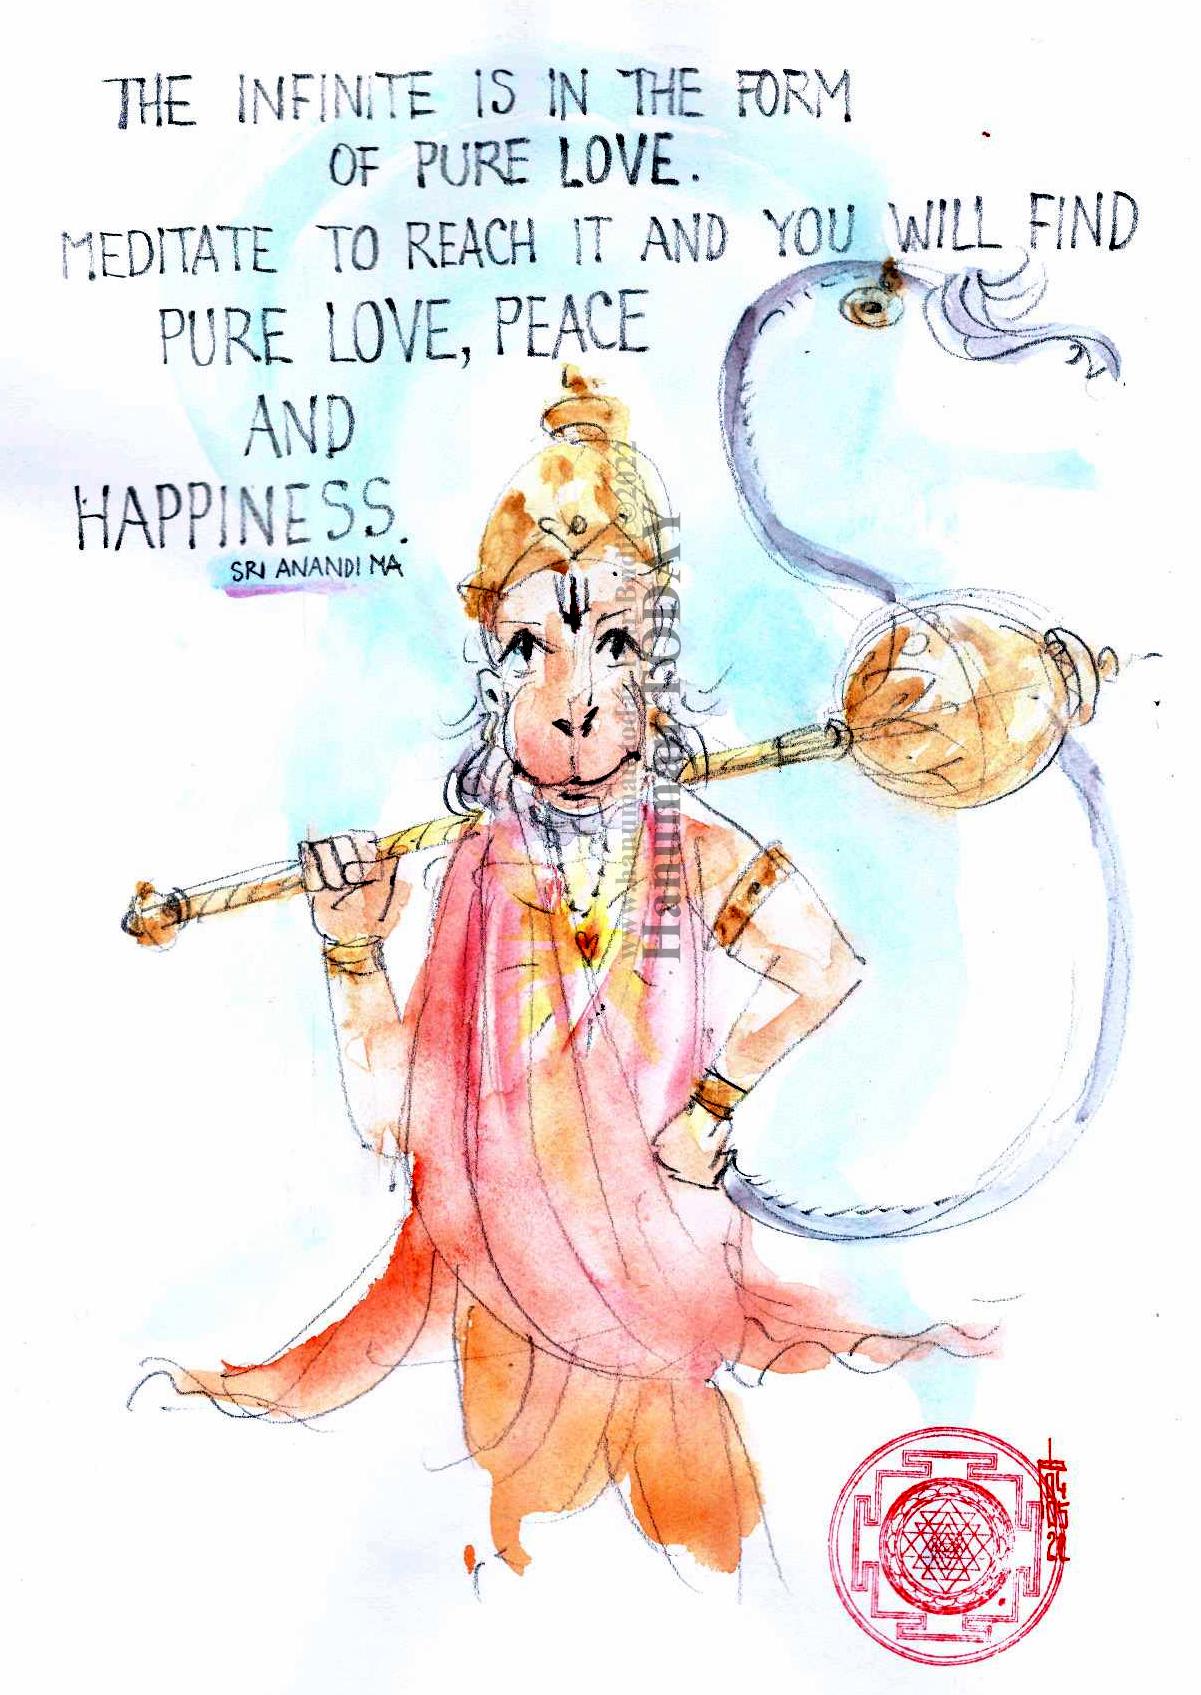 THE INFINITE IS IN THE FORM
OF PURE LOVE.
MEDITATE TO REACH IT AND YOU WILL FIND
PURE LOVE, PEACE
AND
HAPPINESS.
SRI ANANDI MA
Hanuman TODAY